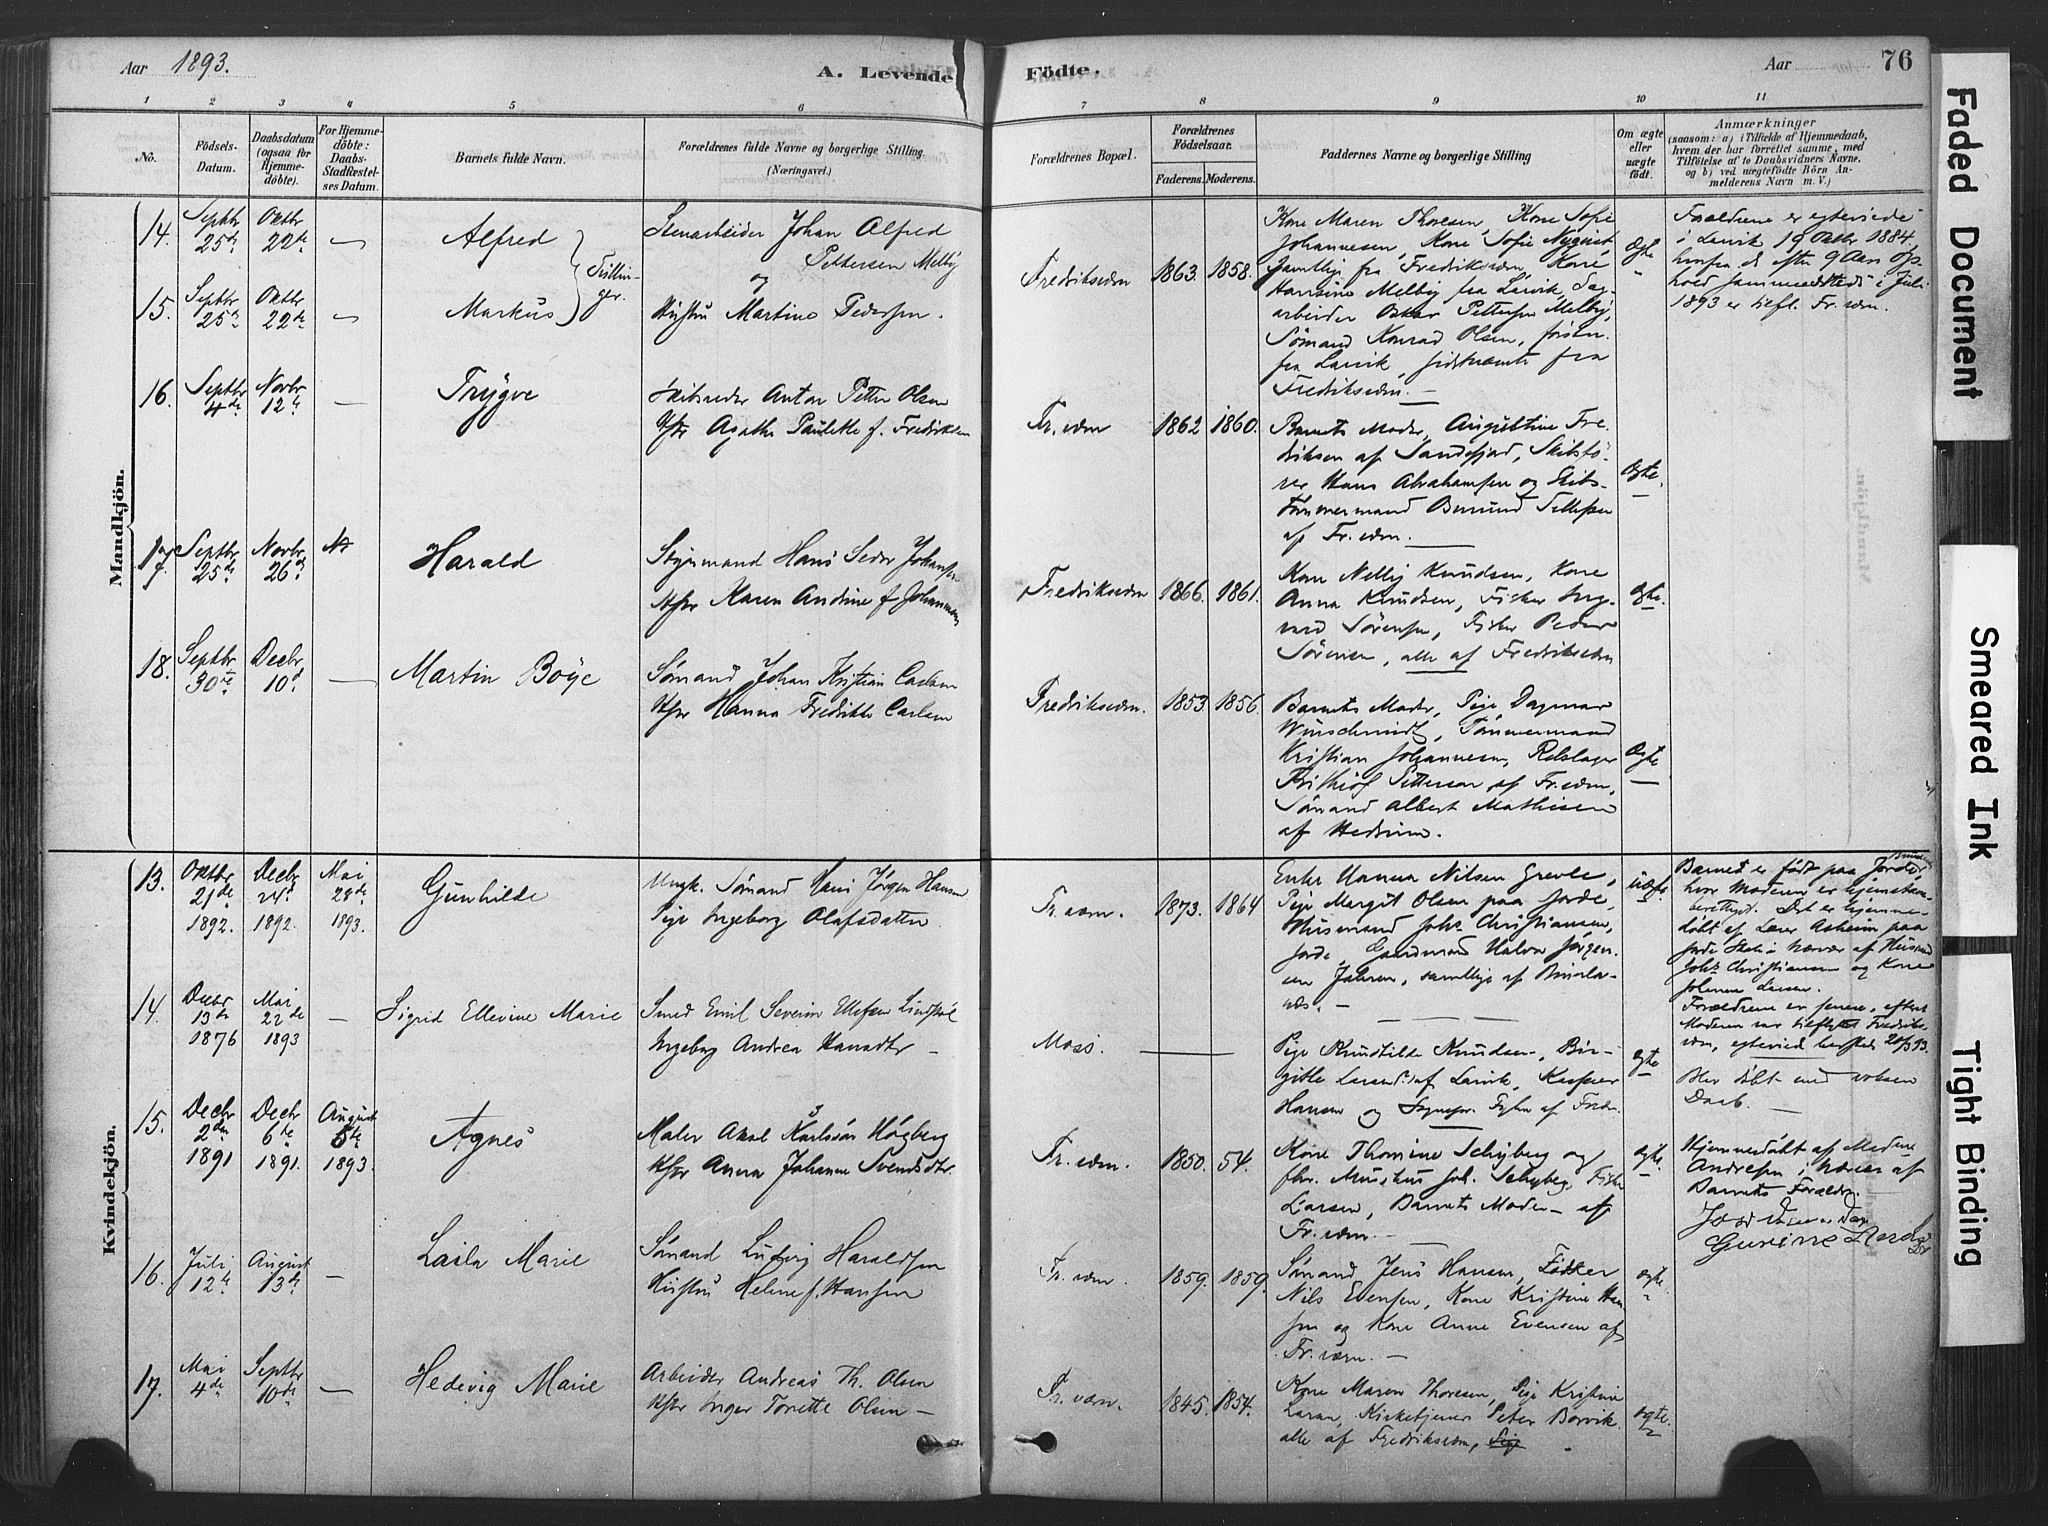 Aar 1893.
A. Levende
Födte.
Aar
76
1 2 3 4 5 6
7 8 9 10 11
No.
Födsels-Datum.
Daabsdatum (ogsaa for Hjemme-döbte).
For Hjemme-döbte: Daabs-Stadfæstel-ses Datum.
Barnets fulde Navn.
Forældrenes fulde Navne og borgerlige Stilling
(Næringsvei.)
Forældrenes Bopæl.
Forældrenes Födselsaar.
Faderens. Moderens.
Faddernes Navne og borgerlige Stilling
Om ægte eller uægte födt.
Anmærkninger
(saasom: a) i Tilfælde af Hjemmedaab,
hvem der har forrettet samme, med
Tilföielse af to Daabsvidners Navne.
og b) ved uægtefödte Börn An-
melderens Navn m. V.)
Mandkjön.
14. Septbr 25de Oktbr 22de — Alfred
Stenarbeider Johan Alfred
Pettersen Melby
og
15. Septbr 25de Oktbr 22de — Markus
Hustru Martine Pedersen.
Fredriksværn 1863. 1858.
Kone Maren Thoresen, Kone Sofie
Johannesen, Kone Sofie Nyqvist,
samtlige fra Fredriksværn, Kone
Hansine Melby fra Larvik, Sag-
arbeider Oskar Pettersen Melby,
Sømand Konrad Olsen, først
fra Larvik, sidstnævnte fra
Fredriksværn. —
Ægte
Forældrene er egteviede
i Larvik 19 Oktbr 1884
hold sammesteds i Juli
1893 er tilfl. Fr.værn.
16. Septbr 4de Novbr 12te — Trygve
Skibsreder Anton Petter Olsen
Hstr Agathe Paulette f. Fredriksen
Fr.værn 1862 1860.
Barnets Moder, Augustine Fre-
driksen af Sandefjord, Skibsfø-
rer Hans Abrahamsen og Skibs-
tømmermand Osmund Tellefsen
af Fr.værn. —
Ægte. —
17. Septbr 25de Novbr 26de Harald
Styrmand Hans Peder Johansen
Hstr Karen Andrine f Johannesen
Fredriksværn 1866. 1861.
Kone Nelly Knudsen, Kone
Anna Knudsen, Fisker Ing-
vard Sörensen, Fisker Peder
Sörensen, alle af Fredriksværn
ægte.
18. Septbr 30te Decbr 10de — Martin Boye
Sömand Johan Kristian Carlsen
Hstr Hanna Fredrikke Carlsen
Fredriksværn. 1853 1856.
Barnets Moder, Pige Dagmar
Wirschmidt, Tömmermand
Kristian Johannesen, Rebslager
Frithiof Pettersen af Fr.værn,
Sömand Albert Mathisen
af Hedrum.
Ægte —
Kvindekjön.
13. Oktbr 21de 1892. Decbr 24de 1892. Mai 28de 1893. Gunhilde
Ungk. Sömand Hans Jørgen Hansen
Pige Ingeborg Olafsdatter
Fr.værn. 1873. 1864
Enke Hanna Nilsen Grevle,
Pige Margit Olsen paa Jorde,
Husmand Johs Christiansen,
Jorde, Gaardmand Halvor Jørgen-
sen Jahren, samtlige af Brunla-
næs. —
uægte.
Barnet er födt paa Jordet,
hvor Moderen er hjemstavns-
berettiget. Det er hjemme-
döbt af Lærer Aasheim paa
Jorde Skole i Nærvær af Husmd
Johs Christiansen og Kone
Larsen.
Forældrene er senere, efterat
Moderen var tilflyttet Fredriks-
værn, egteviet hersteds 20/5 93.
14. Decbr 13de 1876 Mai 22de 1893 — Sigrid Ellevine Marie
Smed Emil Severin Ulefsen Lindköl
Ingeborg Andrea Hansdtr —
Moss. —
Pige Knudtilde Knudsen, Bir-
gitte Larsen af Larvik, Kasper
Hansen og af Fredr.
ægte
Blev döbt med voksen
Daab. —
15. Decbr 2den 1891 Decbr 6te 1891. August 6te 1893. Agnes
Maler Aksel Karlsson Høgberg
Hstr Anna Johanne Svendsdtr
Fr.værn. 1850. 54.
Kone Thomine Schyberg og
Joh. Schyberg, Fisker
Larsen, Barnets Moder — af
Fr.værn. —
ægte. —
Hjemmedöbt af Madame
Andresen i Nærvær af
Barnets Forældre. —
Jordemoder
16. Juli 12te August 13de — Laila Marie
Sömand Ludvig Haraldsen
Hustru Helene f. Hansen
Fr.værn. 1859. 1859.
Sömand Jens Hansen, Fisker
Nils Evensen, Kone Kristine Han-
sen og Kone Anne Evensen af
Fr.værn. —
ægte.
17. Mai 4de Septbr 10de — Hedevig Marie
Arbeider Andreas Th. Olsen
Hstr Inger Tonette Olsen —
Fr. værn. 1845. 1854.
Kone Maren Thoresen, Pige Kristine
Larsen, Kirketjener Peter Borvik
alle af Fredriksværn, Pige
ægte
Faded Document
Smeared Ink
Tight Binding